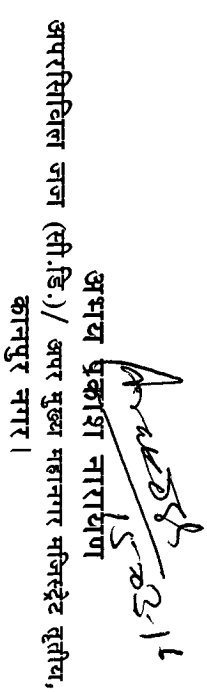 अभय प्रकाश नारायण
अपरसिविल जज (सी.डि.)/ अपर मुख्य महानगर मजिस्ट्रेट तृतीय,
कानपुर नगर।